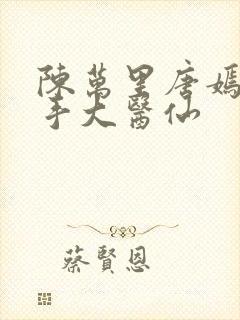 陳萬里唐嫣
手大醫仙
蔡賢恩